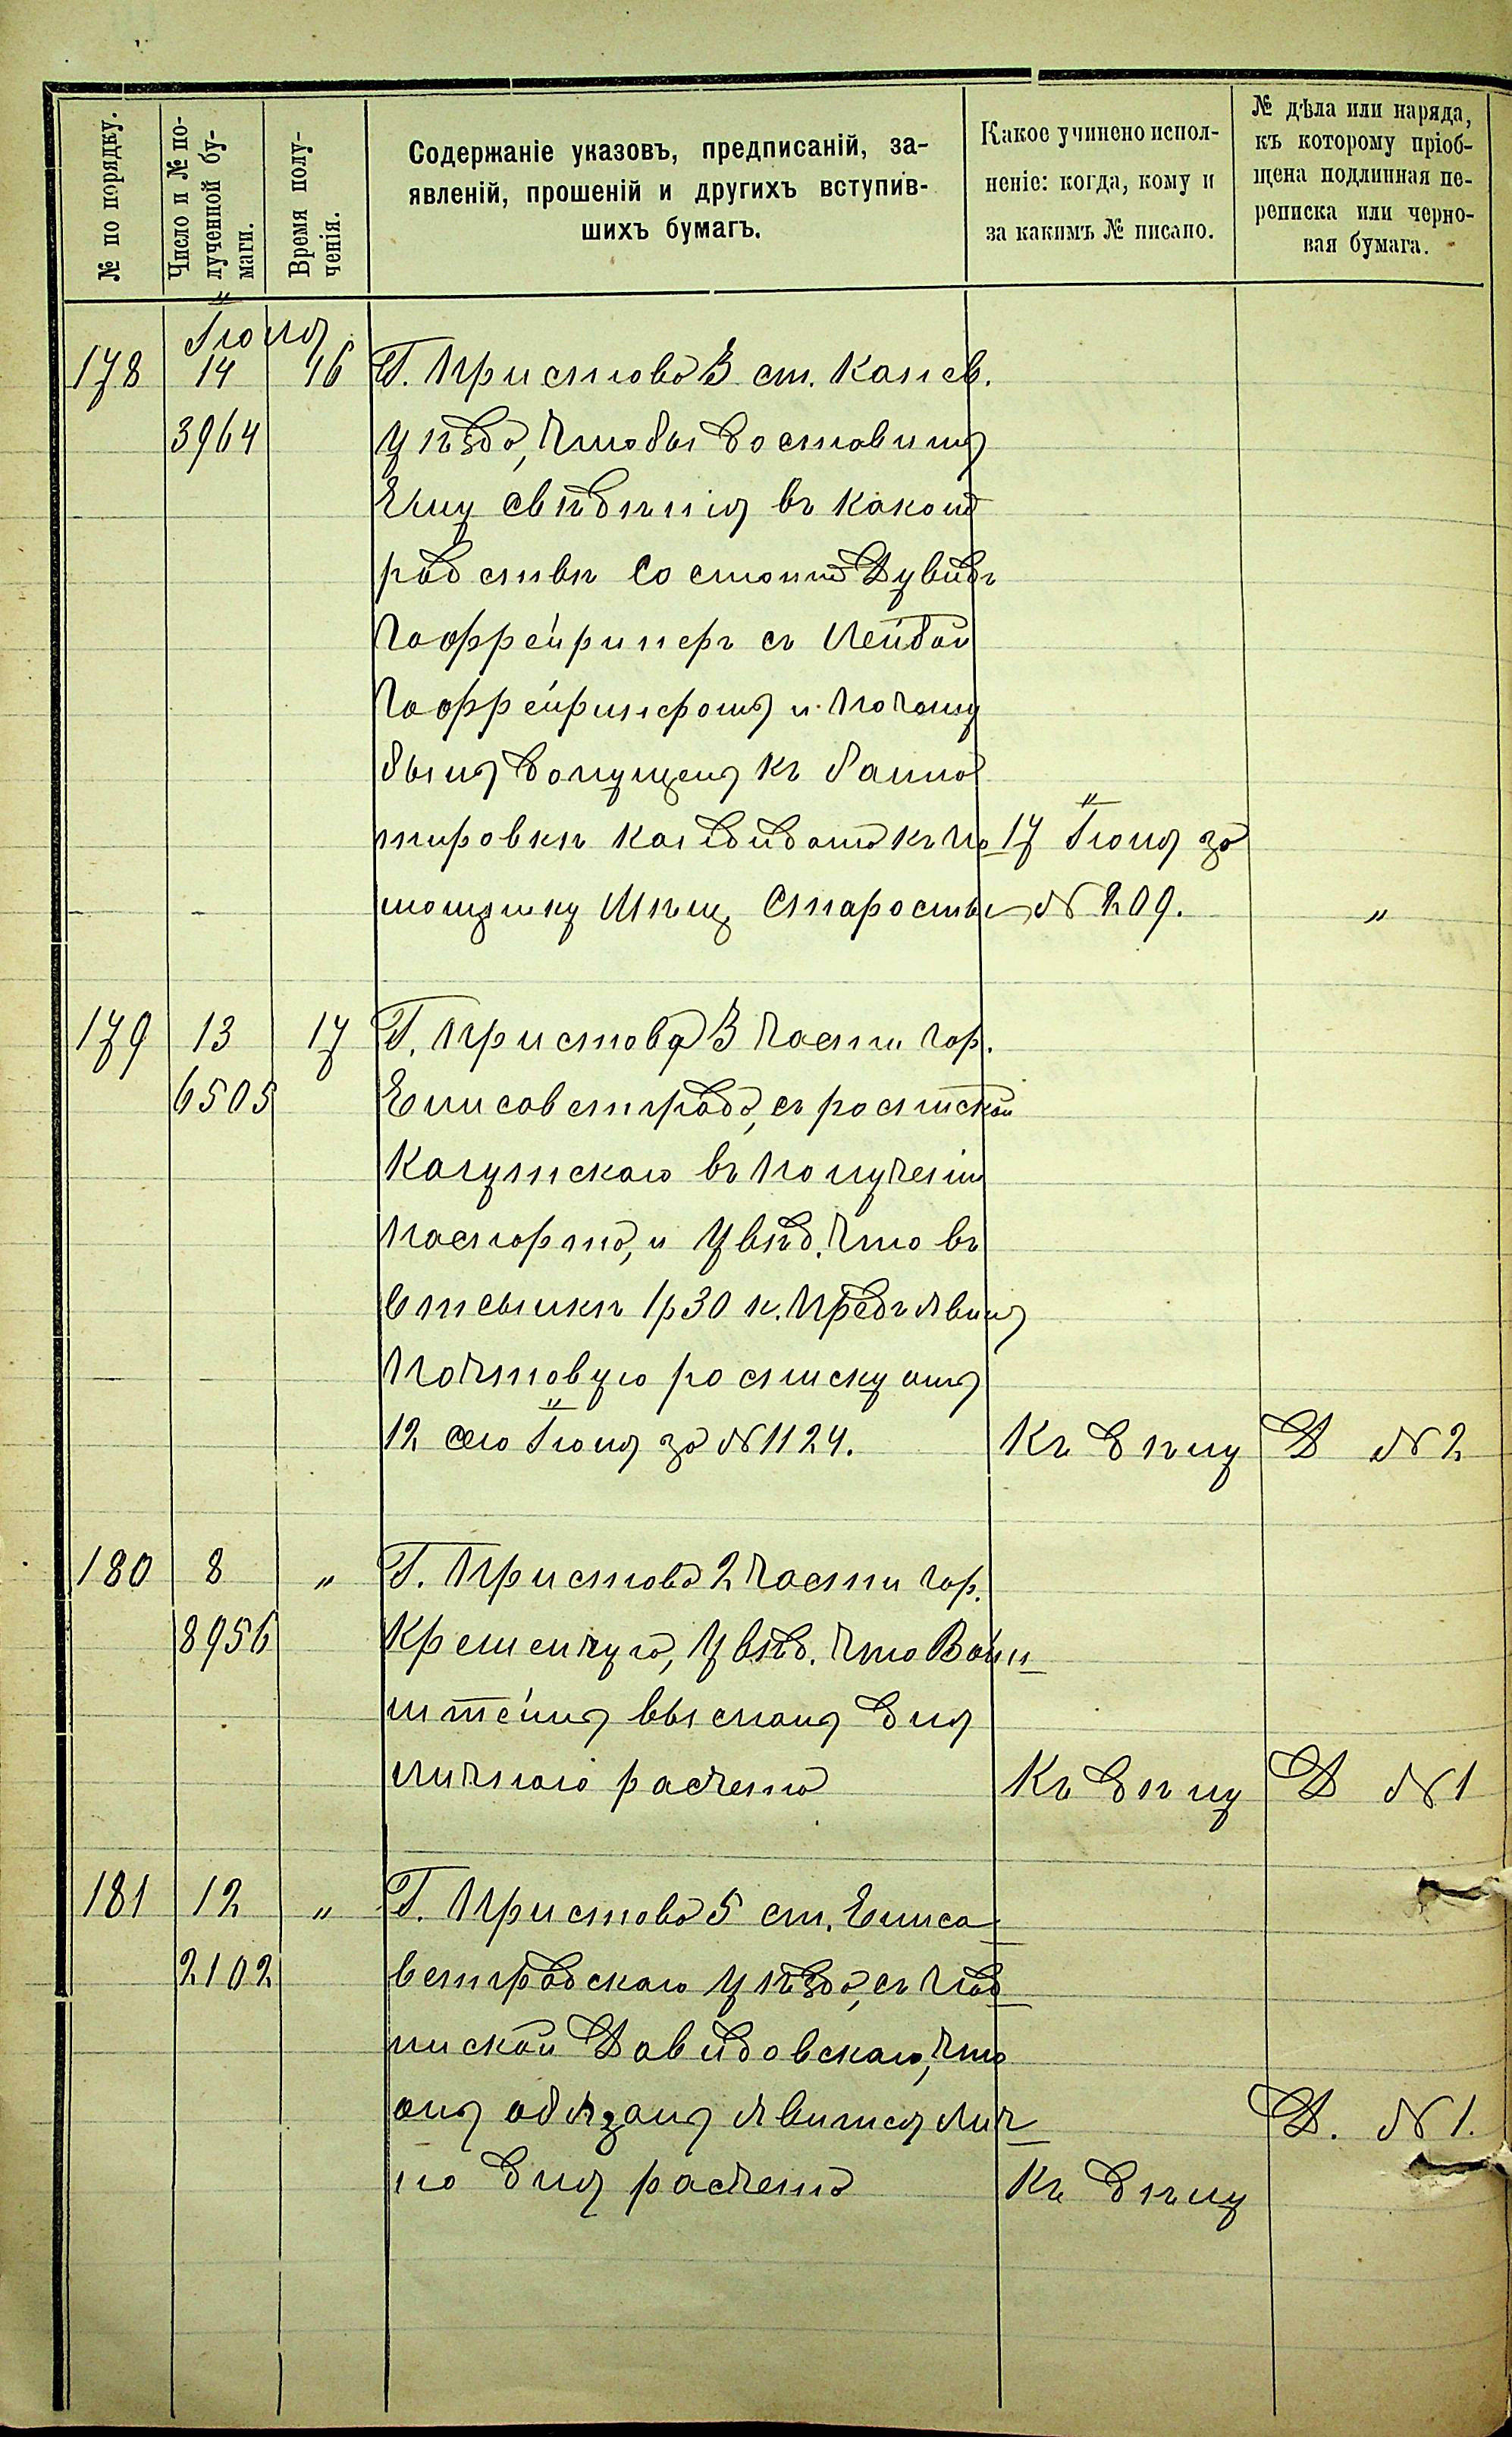 № по порядку.
Число и № по-
лученной бу-
маги.
Время полу-
ченія.
Содержаніе указовъ, предписаній, за-
явленій, прошеній и другихъ вступив-
шихъ бумагъ.
Какое учинено испол-
неніе: когда, кому и
за какимъ № писано.
№ дѣла или наряда,
къ которому пріоб-
щена подлинная пе-
реписка или черно-
вая бумага.
Іюня
178 14 16 Г. Пристава 3 ст. Канев.
3964 уѣзда, чтобы доставить
ему свѣденія въ какомъ
родствѣ состоитъ Дувидъ
Гоффейринеръ съ Лейбой
Гоффейринеромъ и почему
былъ допущенъ къ балло
тировкѣ кандидатъ къ по 17 Іюня за
мощнику Мѣщ. Старосты № 209. "
179 13 17 Г. Пристава 3 части гор.
6505 Елисаветграда, съ роспиской
Кагунскаго въ полученіи
паспорта, и увѣд. что въ
втсылкѣ 1 р 30 к. предъявилъ
почтовую росписку отъ
12 сего Іюня за № 1124. Къ дѣлу Д № 2
180 8 " Г. Пристава 2 части гор.
8956 Кременчуга, увѣд. что Вайн
штейнъ высланъ для
личнаго расчета Къ дѣлу Д № 1
181 12 " Г. Пристава 5 ст. Елиса
2102 ветградскаго уѣзда, съ под
пиской Давидовскаго, что
онъ обязанъ явится лич
Д. № 1.
но для расчета Къ дѣлу